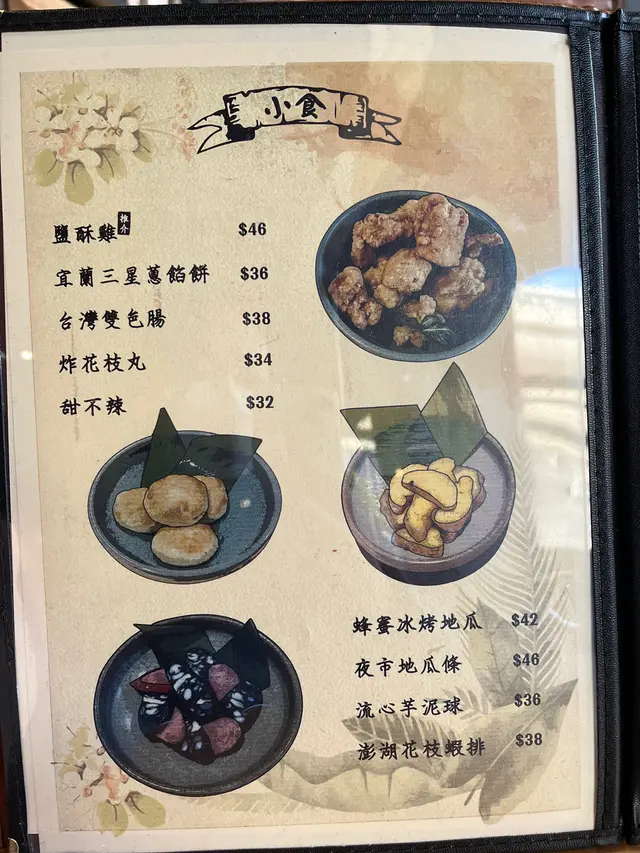 小食
鹽酥雞 推介 $46
宜蘭三星蔥餡餅 $36
台灣雙色腸 $38
炸花枝丸 $34
甜不辣 $32
蜂蜜冰烤地瓜 $42
夜市地瓜條 $46
流心芋泥球 $36
澎湖花枝蝦排 $38